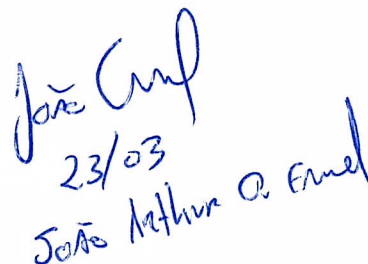 João
23/03
João Arthur O. Ermel